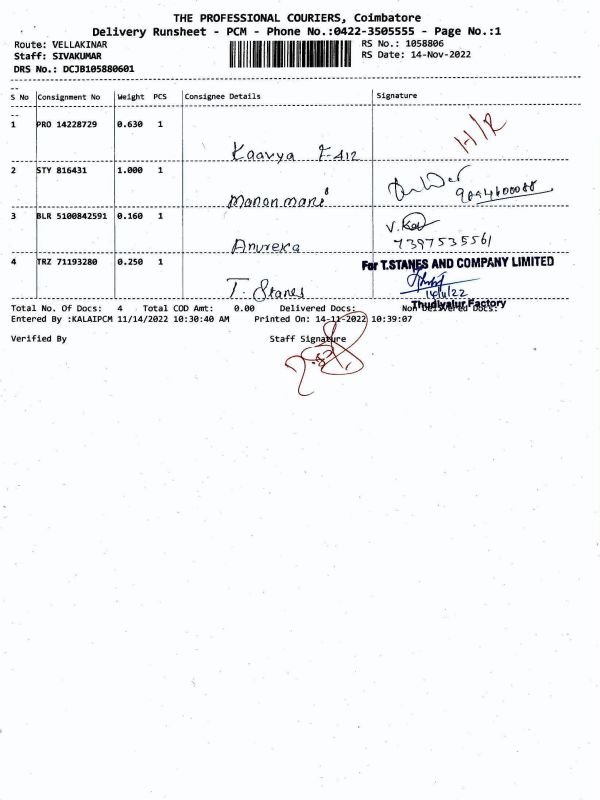 THE PROFESSIONAL COURIERS, Coimbatore
Delivery Runsheet - PCM - Phone No.:0422-3505555 - Page No.:1
Route: VELLAKINAR RS No.: 1058806
Staff: SIVAKUMAR RS Date: 14-Nov-2022
DRS No.: DCJB105880601
S No Consignment No Weight PCS Consignee Details Signature
1 PRO 14228729 0.630 1 H/R
Kaavya F-412
2 STY 816431 1.000 1
Manonmani
3 BLR 5100842591 0.160 1 V.
Anureka 7397535561
4 TRZ 71193280 0.250 1 For T.STANES AND COMPANY LIMITED
T. Stanes 14/11/22
Thudiyalur Factory
Total No. Of Docs: 4 Total COD Amt: 0.00 Delivered Docs: Non Delivered Docs:
Entered By :KALAIPCM 11/14/2022 10:30:40 AM Printed On: 14-11-2022 10:39:07
Verified By Staff Signature